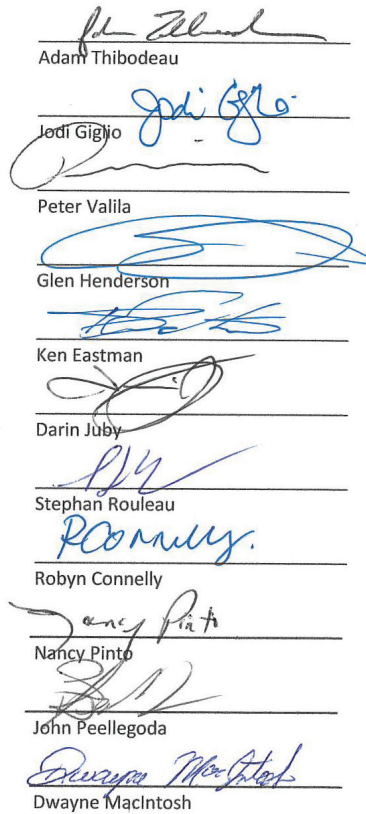 Adam Thibodeau
Jodi Giglio
Jodi Giglio
Peter Valila
Glen Henderson
Ken Eastman
Darin Juby
Stephan Rouleau
RConnelly.
Robyn Connelly
Nancy Pinto
Nancy Pinto
John Peellegoda
Dwayne MacIntosh
Dwayne MacIntosh